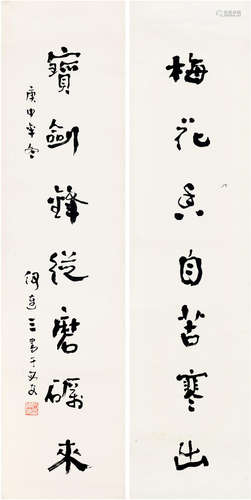 梅花香自苦寒出
寶劍鋒從磨礪來
庚申年冬